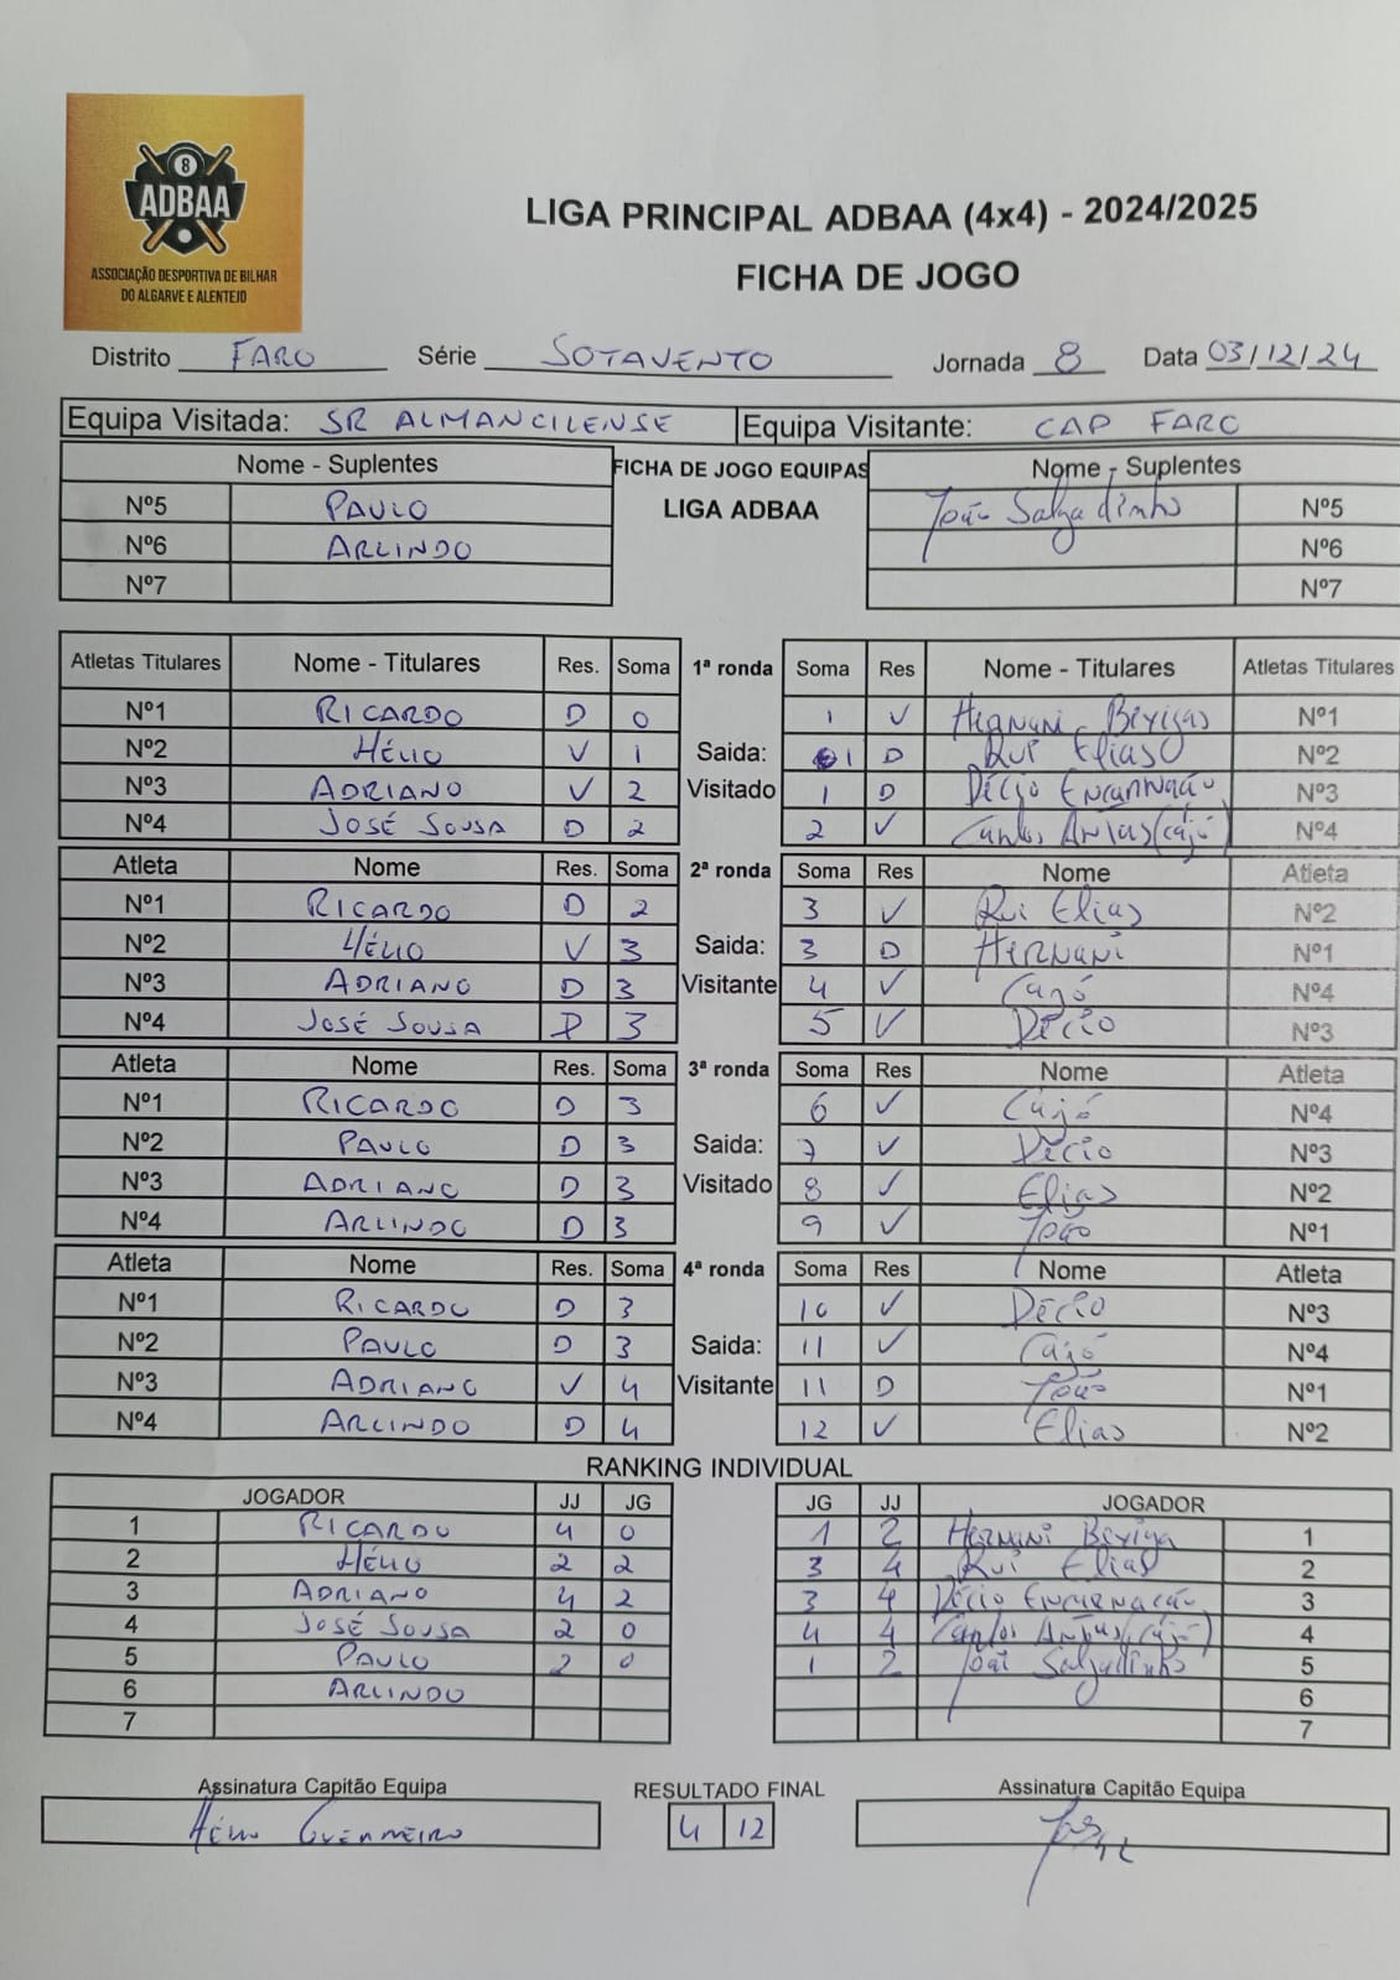 8
ADBAA
ASSOCIAÇÃO DESPORTIVA DE BILHAR
DO ALGARVE E ALENTEJO
LIGA PRINCIPAL ADBAA (4x4) - 2024/2025
FICHA DE JOGO
Distrito FARO Série SOTAVENTO Jornada 8 Data 03/12/24
Equipa Visitada: SR ALMANCILENSE Equipa Visitante: CAP FARO
Nome - Suplentes FICHA DE JOGO EQUIPAS Nome - Suplentes
Nº5 PAULO LIGA ADBAA João Salgadinho Nº5
Nº6 ARLINDO Nº6
Nº7 Nº7
Atletas Titulares Nome - Titulares Res. Soma 1ª ronda Soma Res Nome - Titulares Atletas Titulares
Nº1 RICARDO D 0 1 V HERNANI BEXIGAS Nº1
Nº2 HÉLIO V 1 Saida: 1 D RUI Elias Nº2
Nº3 ADRIANO V 2 Visitado 1 D Décio Encarnação Nº3
Nº4 JOSÉ SOUSA D 2 2 V Carlos (Cajó) Nº4
Atleta Nome Res. Soma 2ª ronda Soma Res Nome Atleta
Nº1 RICARDO D 2 3 V Rui Elias Nº2
Nº2 HÉLIO V 3 Saida: 3 D HERNANI Nº1
Nº3 ADRIANO D 3 Visitante 4 V Cajó Nº4
Nº4 JOSÉ SOUSA D 3 5 V Décio Nº3
Atleta Nome Res. Soma 3ª ronda Soma Res Nome Atleta
Nº1 RICARDO D 3 6 V Cajó Nº4
Nº2 PAULO D 3 Saida: 7 V Décio Nº3
Nº3 ADRIANO D 3 Visitado 8 V Elias Nº2
Nº4 ARLINDO D 3 9 V João Nº1
Atleta Nome Res. Soma 4ª ronda Soma Res Nome Atleta
Nº1 RICARDO D 3 10 V Décio Nº3
Nº2 PAULO D 3 Saida: 11 V Cajó Nº4
Nº3 ADRIANO V 4 Visitante 11 D João Nº1
Nº4 ARLINDO D 4 12 V Elias Nº2
RANKING INDIVIDUAL
JOGADOR JJ JG JG JJ JOGADOR
1 RICARDO 4 0 1 2 HERNANI Bexiga 1
2 HÉLIO 2 2 3 4 Rui Elias 2
3 ADRIANO 4 2 3 4 Décio ENCARNAção 3
4 JOSÉ SOUSA 2 0 4 4 Carlos (Cajó) 4
5 PAULO 2 0 1 2 João Salgadinho 5
6 ARLINDO 6
7 7
Assinatura Capitão Equipa RESULTADO FINAL Assinatura Capitão Equipa
Hélio GUERREIRO 4 12